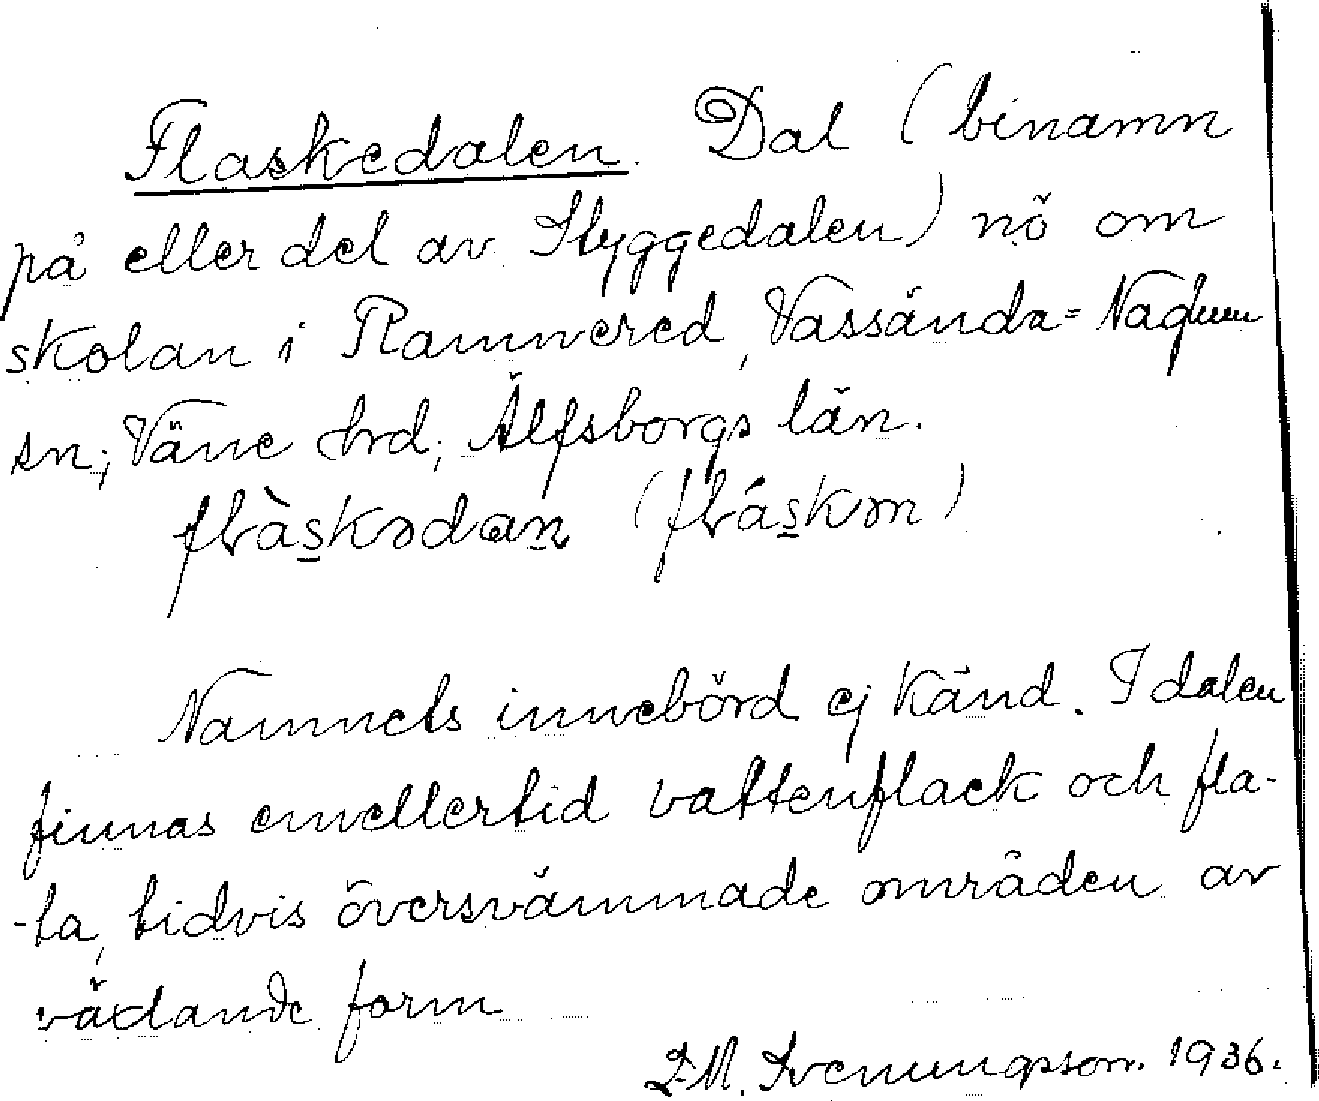 Flaskedalen. Dal (binamn
på eller del av Styggedalen) nö om
skolan i Ramnered, Vassända-Naglum
sn; Väne hrd; Älfsborgs län.
flàskədan (fláskən)
Namnets innebörd ej känd. I dalen
finnas emellertid vattenflack och fla-
-ta, tidvis översvämmade områden av
växlande form
Svenungsson. 1936.